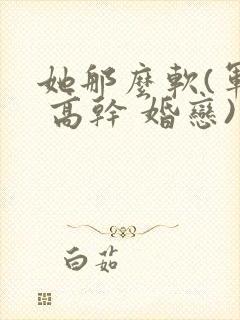 她那麼軟(軍
高幹 婚戀)
白茹